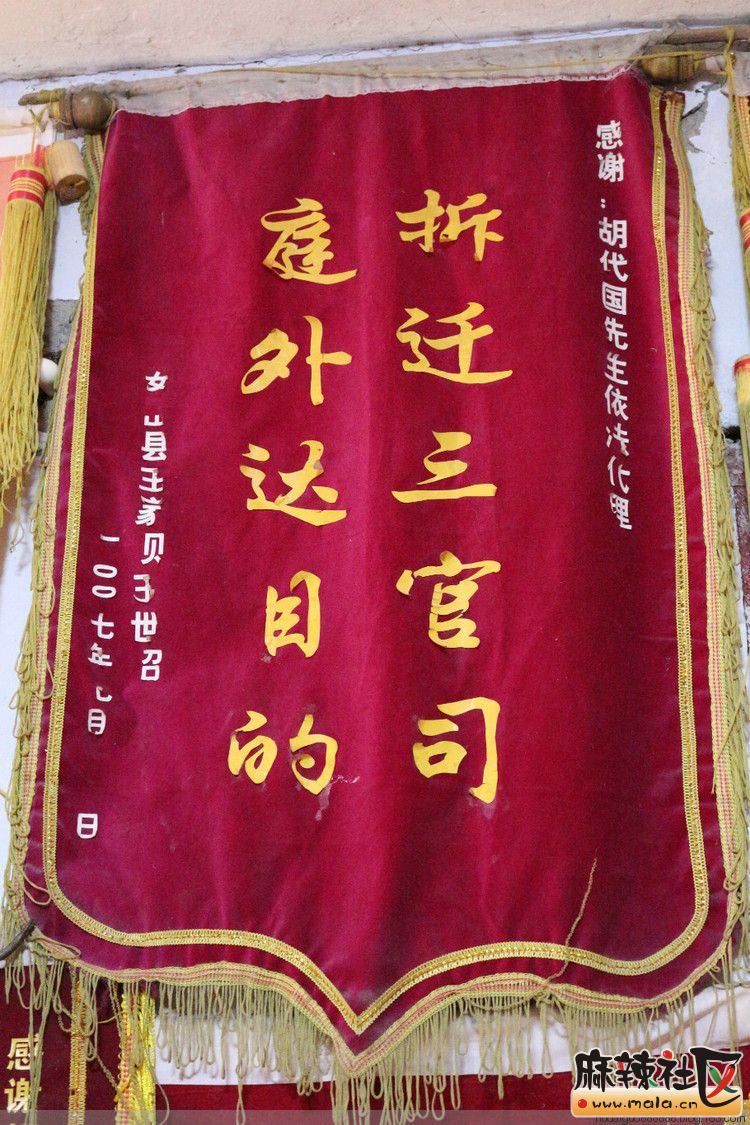 感谢：胡代国先生依法代理
折迁三官司
庭外达目的
县王家贝子世召
00七年 月 日
感谢
麻辣社区
www.mala.cn